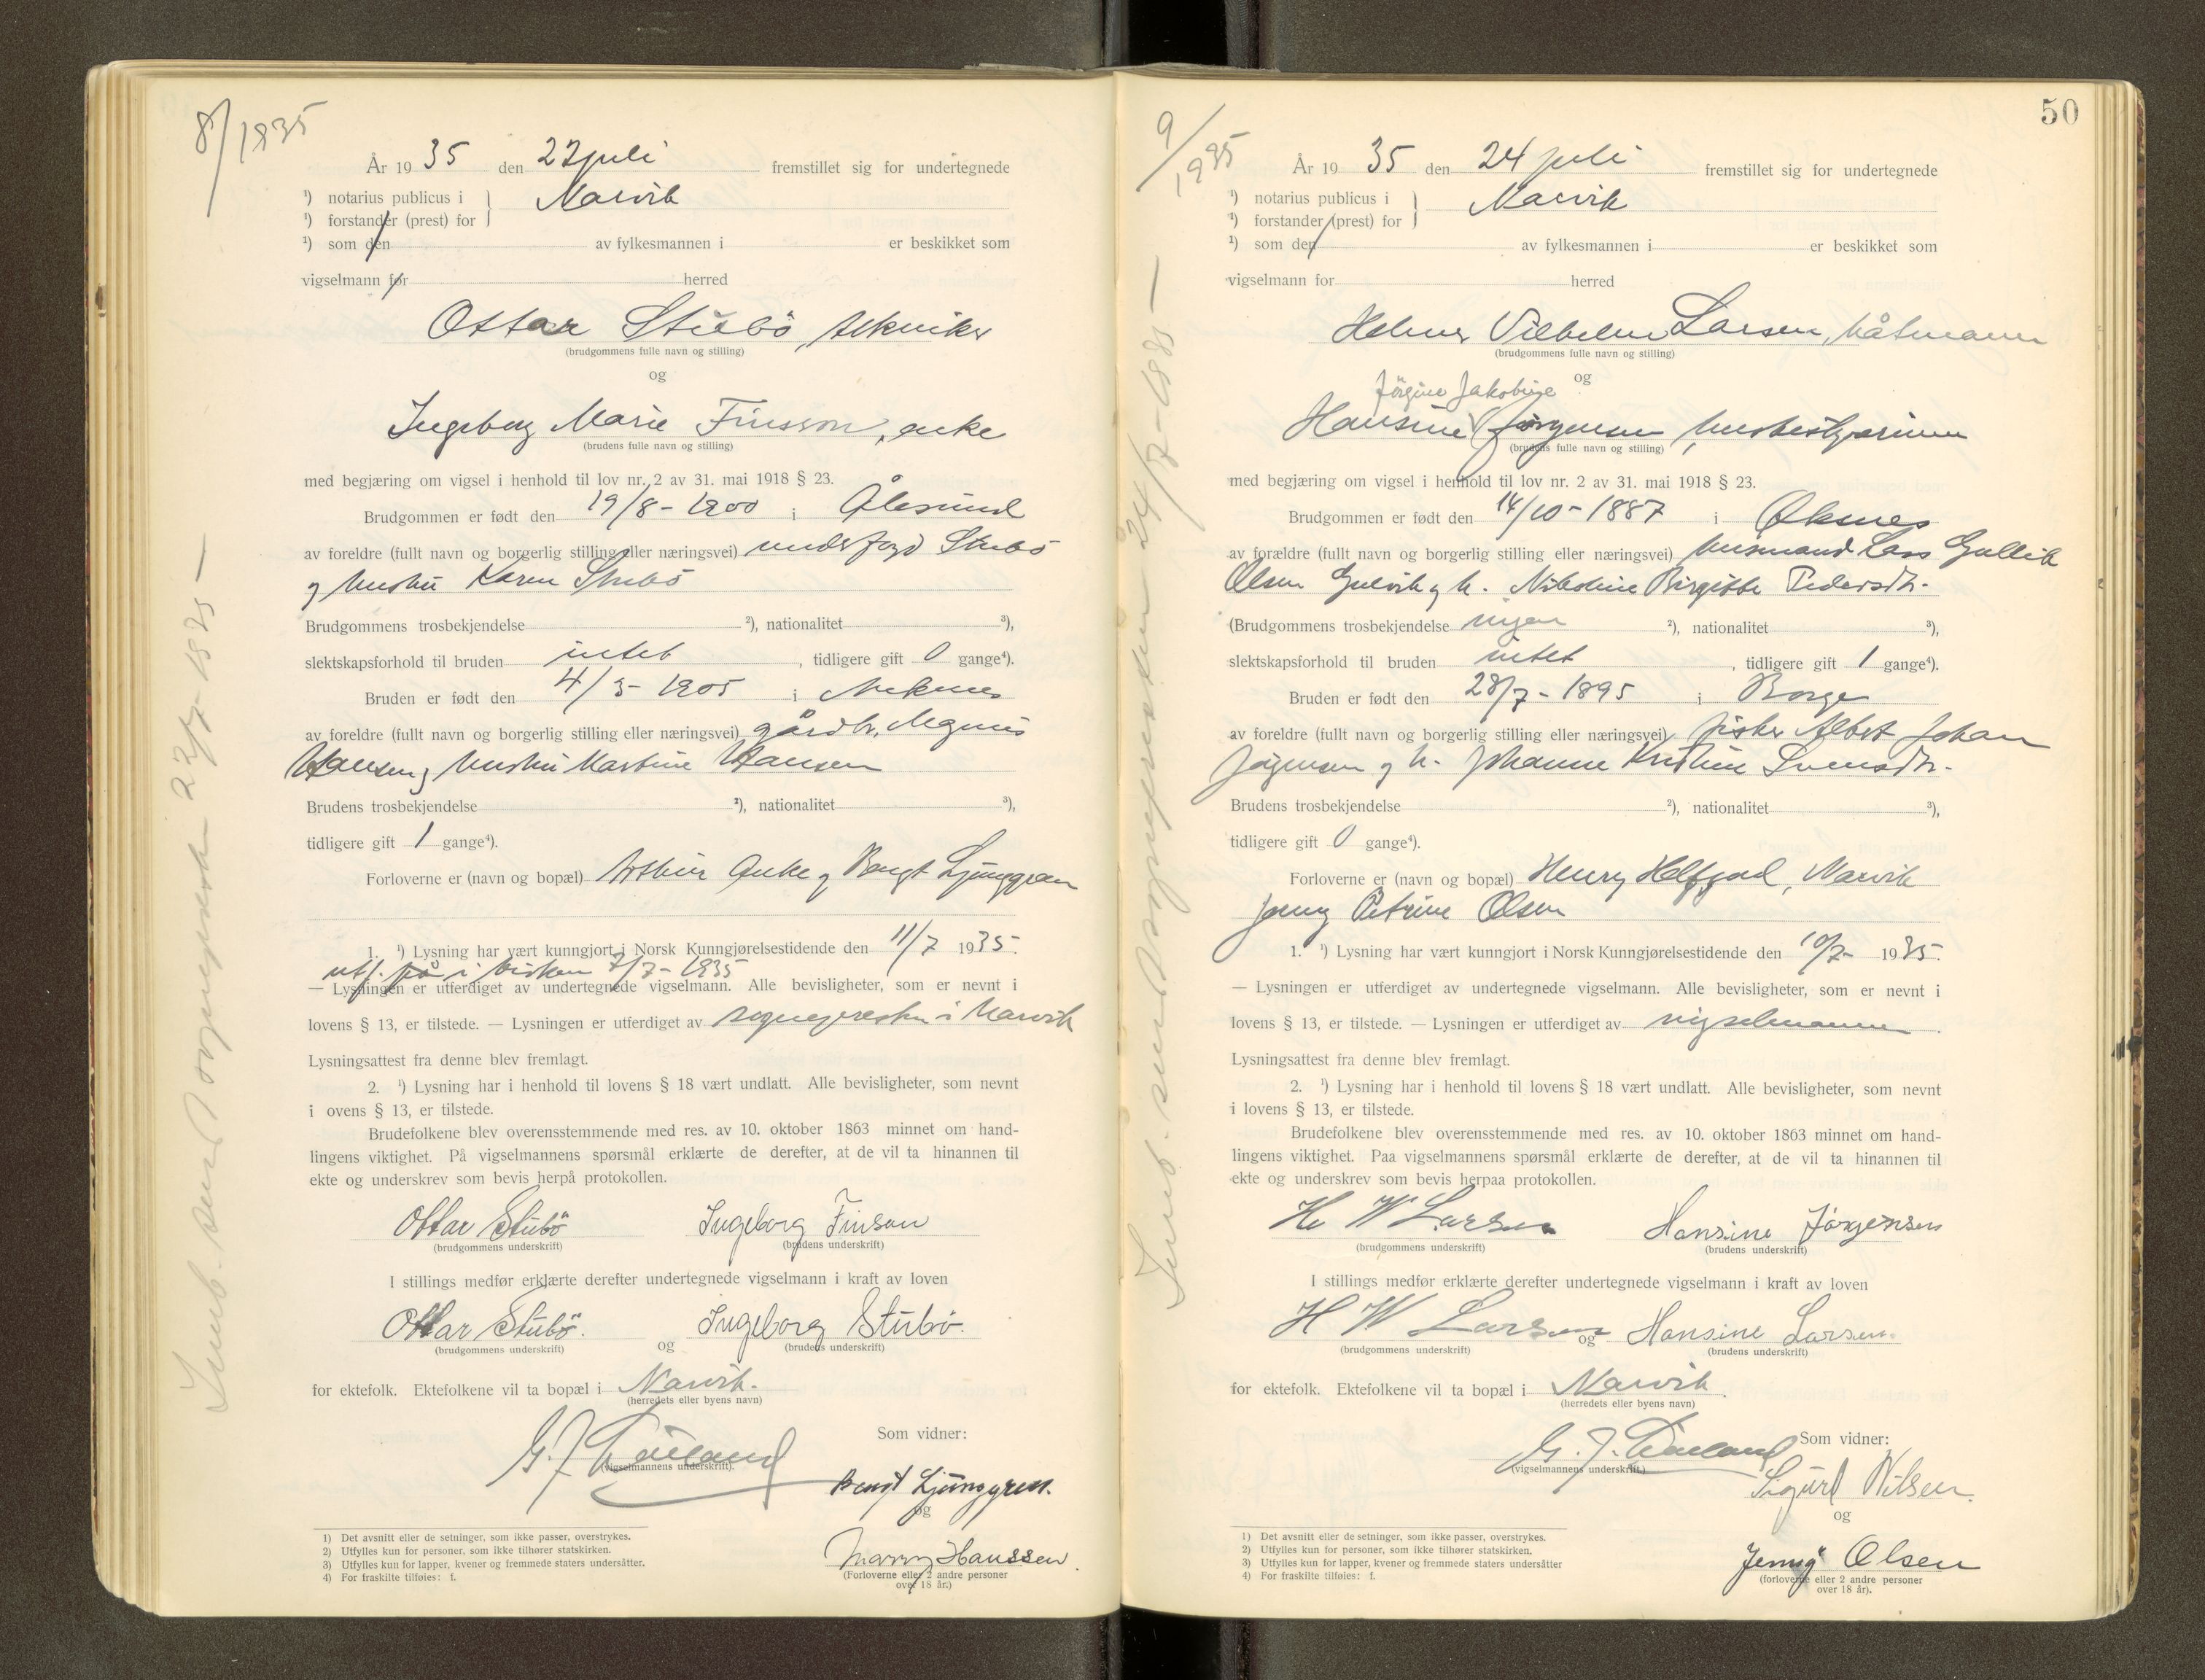 8/1935
År 1935 den 22 juli fremstillet sig for undertegnede
¹) notarius publicus i } Narvik
¹) forstander (prest) for
¹) som den av fylkesmannen i er beskikket som
vigselmann for herred
Ottar Stubö, tekniker
(brudgommens fulle navn og stilling)
og
Ingeborg Marie Finsson, enke
(brudens fulle navn og stilling)
med begjæring om vigsel i henhold til lov nr. 2 av 31. mai 1918 § 23.
Brudgommen er født den 19/8 - 1900 i Ålesund
av foreldre (fullt navn og borgerlig stilling eller næringsvei) Stubö
og hustru Karen Stubö
Brudgommens trosbekjendelse ²), nationalitet ³),
slektskapsforhold til bruden intet, tidligere gift 0 gange⁴).
Bruden er født den 4/3 - 1905 i
av foreldre (fullt navn og borgerlig stilling eller næringsvei) gårdbr. Magnus
Hansen og hustru Martine Hansen
Brudens trosbekjendelse ²), nationalitet ³),
tidligere gift 1 gange⁴).
Forloverne er (navn og bopæl) Arthur og Bengt Ljunggren
1. ¹) Lysning har vært kunngjort i Norsk Kunngjørelsestidende den 11/7 1935.
i kirken 7/7 - 1935
— Lysningen er utferdiget av undertegnede vigselmann. Alle bevisligheter, som er nevnt i
lovens § 13, er tilstede. — Lysningen er utferdiget av sognepresten i Narvik
Lysningsattest fra denne blev fremlagt.
2. ¹) Lysning har i henhold til lovens § 18 vært undlatt. Alle bevisligheter, som nevnt
i ovens § 13, er tilstede.
Brudefolkene blev overensstemmende med res. av 10. oktober 1863 minnet om hand-
lingens viktighet. På vigselmannens spørsmål erklærte de derefter, at de vil ta hinannen til
ekte og underskrev som bevis herpå protokollen.
Ottar Stubö Ingeborg Finson
(brudgommens underskrift) (brudens underskrift)
I stillings medfør erklærte derefter undertegnede vigselmann i kraft av loven
Ottar Stubö. og Ingeborg Stubö.
(brudgommens underskrift) (brudens underskrift)
for ektefolk. Ektefolkene vil ta bopæl i Narvik.
(herredets eller byens navn)
Som vidner:
G. J.
(vigselmannens underskrift).
Bengt Ljunggren.
og
Hanssen
(Forloverne eller 2 andre personer
over 18 år.)
1) Det avsnitt eller de setninger, som ikke passer, overstrykes.
2) Utfylles kun for personer, som ikke tilhører statskirken.
3) Utfylles kun for lapper, kvener og fremmede staters undersåtter.
4) For fraskilte tilføies: f.
Innb. sendt sognepresten 22/7-1935 —
50
9/1935
År 1935 den 24 juli fremstillet sig for undertegnede
¹) notarius publicus i } Narvik
¹) forstander (prest) for
¹) som den av fylkesmannen i er beskikket som
vigselmann for herred
Helmer Vilhelm Larsen, båtmann
(brudgommens fulle navn og stilling)
og
Jörgine Jakobine
Hansine Jørgensen, husbestyrerinne
(brudens fulle navn og stilling)
med begjæring om vigsel i henhold til lov nr. 2 av 31. mai 1918 § 23.
Brudgommen er født den 14/10 - 1887 i Øksnes
av forældre (fullt navn og borgerlig stilling eller næringsvei) husmand Lars Gullik
Olsen og h. Nikoline Birgitte Pedersdtr.
(Brudgommens trosbekjendelse ingen ²), nationalitet ³),
slektskapsforhold til bruden intet, tidligere gift 1 gange⁴).
Bruden er født den 28/7 - 1895 i Borge
av foreldre (fullt navn og borgerlig stilling eller næringsvei) fisker Albert Johan
Jørgensen og h. Johanne Kristine Svensdtr.
Brudens trosbekjendelse ²), nationalitet ³),
tidligere gift 0 gange⁴).
Forloverne er (navn og bopæl) Henry Helfjord, Narvik
Jenny Petrine Olsen
1. ¹) Lysning har vært kunngjort i Norsk Kunngjørelsestidende den 10/7- 1935.
— Lysningen er utferdiget av undertegnede vigselmann. Alle bevisligheter, som er nevnt i
lovens § 13, er tilstede. — Lysningen er utferdiget av vigselmannen.
Lysningsattest fra denne blev fremlagt.
2. ¹) Lysning har i henhold til lovens § 18 vært undlatt. Alle bevisligheter, som nevnt
i lovens § 13, er tilstede.
Brudefolkene blev overensstemmende med res. av 10. oktober 1863 minnet om hand-
lingens viktighet. Paa vigselmannens spørsmål erklærte de derefter, at de vil ta hinannen til
ekte og underskrev som bevis herpaa protokollen.
H W Larsen Hansine Jörgensen
(brudgommens underskrift) (brudens underskrift)
I stillings medfør erklærte derefter undertegnede vigselmann i kraft av loven
H W Larsen og Hansine Larsen
(brudgommens underskrift) (brudens underskrift)
for ektefolk. Ektefolkene vil ta bopæl i Narvik.
(herredets eller byens navn)
Som vidner:
G. J.
(vigselmannens underskrift.)
Sigurd Nilsen.
og
Jenny Olsen
(forloverne eller 2 andre personer
over 18 år).
1) Det avsnitt eller de setninger, som ikke passer, overstrykes.
2) Utfylles kun for personer, som ikke tilhører statskirken.
3) Utfylles kun for lapper, kvener og fremmede staters undersåtter
4) For fraskilte tilføies: f.
Innb. sendt sognepresten 24/7-1935 —